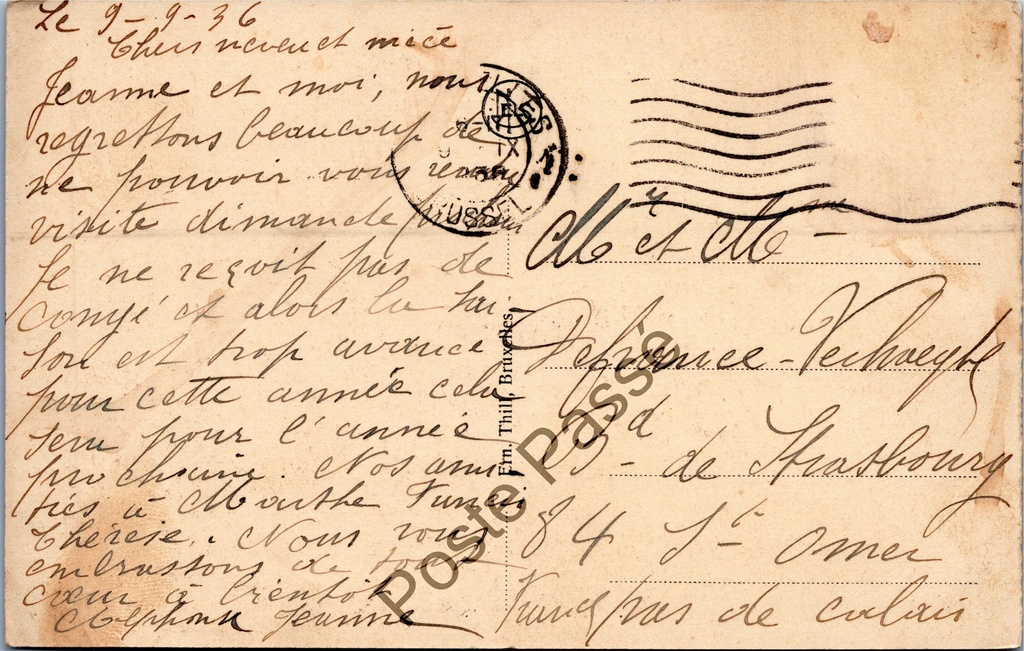 Le 9-9-36
Chers neveu et nièce
Jeanne et moi, nous
regrettons beaucoup de
ne pouvoir vous rendre
visite dimanche
Je ne reçoit pas de
congé et alors la sai
son est trop avancé
pour cette année cela
sera pour l'année
prochaine. Nos ami
tiés à Marthe Francis
Thérèse. Nous vous
embrassons de tout
cœur à bientôt
Alphonse Jeanne
IX
36
Ern. Thill, Bruxelles
Mr et Mme
Defrance-Verhaeghe
Bd de Strasbourg
84 St Omer
pas de calais
Poste Passé